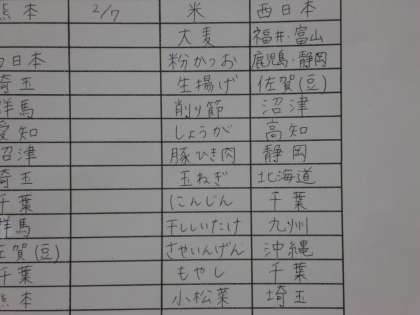 熊本 2/7 米 西日本
大麦 福井・富山
西日本 粉かつお 鹿児島・静岡
埼玉 生揚げ 佐賀(豆)
群馬 削り節 沼津
愛知 しょうが 高知
沼津 豚ひき肉 静岡
埼玉 玉ねぎ 北海道
千葉 にんじん 千葉
群馬 干ししいたけ 九州
佐賀(豆) さやいんげん 沖縄
千葉 もやし 千葉
熊本 小松菜 埼玉